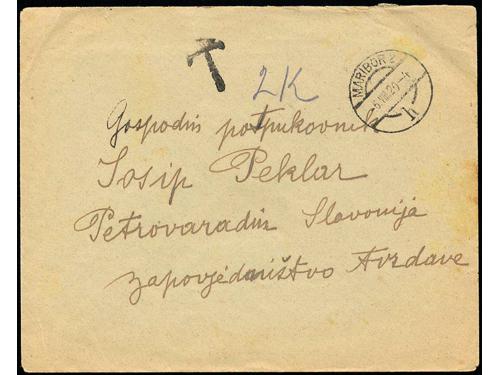 T
2K
MARIBOR 2
Gospodin potpukovnik
Josip Peklar
Petrovaradin Slavonija
zapovjedništvo Tvrdave